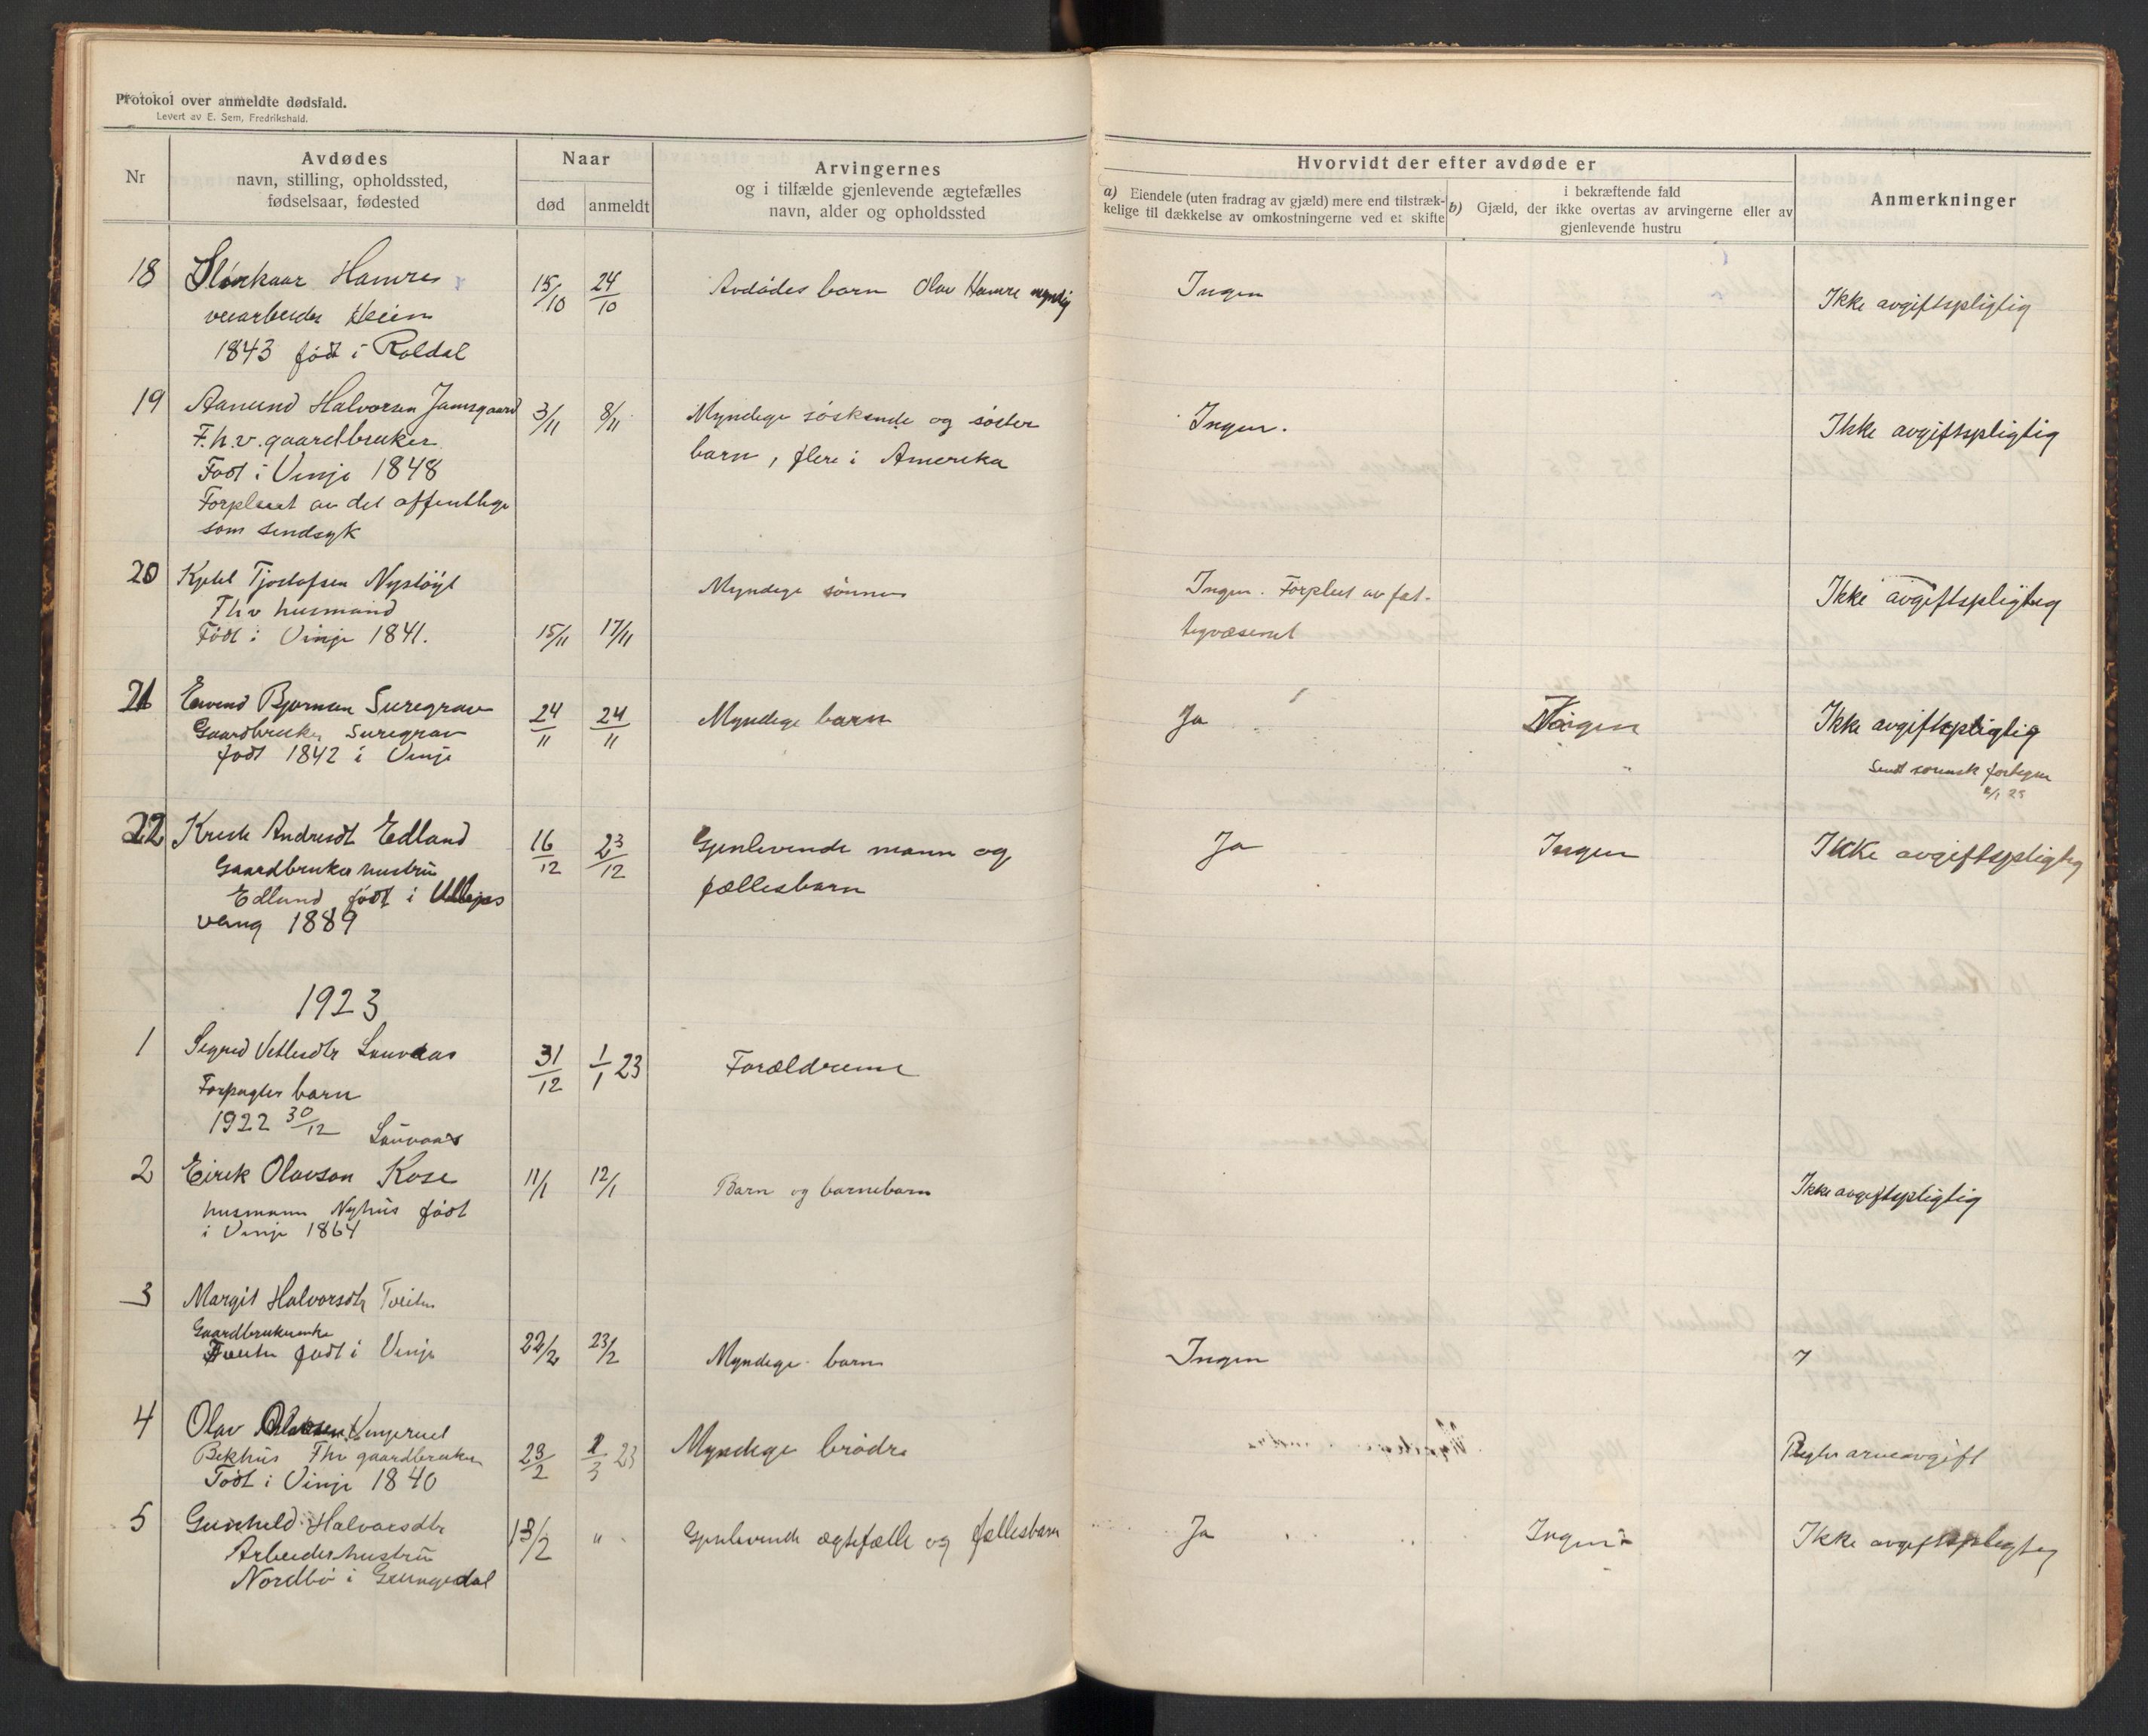 Protokol over anmeldte dødsfald.
Levert av E. Sem, Fredrikshald.
Nr
Avdødes
navn, stilling, opholdssted,
fødselsaar, fødested
Naar
død
anmeldt
Arvingernes
og i tilfælde gjenlevende ægtefælles
navn, alder og opholdssted
Hvorvidt der efter avdøde er
a) Eiendele (uten fradrag av gjæld) mere end tilstræk-
kelige til dækkelse av omkostningerne ved et skifte
i bekræftende fald
b) Gjæld, der ikke overtas av arvingerne eller av
gjenlevende hustru
Anmerkninger
18 Hamre 15/10 24/10 Avdødes barn Olav Hamre myndig Ingen Ikke avgiftspligtig
1843 født i Roldal
19 Aanund Halvorsen Jamsgaard 3/11 8/11 Myndige søskende og søster Ingen. Ikke avgiftspligtig
F.h.v. gaardbruker barn, flere i Amerika
Født i Vinje 1848
Forpleiet av det offentlige
som sindsyk
20 Kjetil Tjostofsen Nystøyl Myndige sønner Ingen. Forpleiet av fat- Ikke avgiftspligtig
Fhv husmand
Født i Vinje 1841. 15/11 17/11 tigvæsenet
21 Eivind Bjørnsen Suregrav 24/11 24/11 Myndige barn Ja Ingen Ikke avgiftspligtig
Gaardbruker Suregrav
født 1842 i Vinje
22 Andresdt Edland 16/12 23/12 Gjenlevende mann og Ja Ingen Ikke avgiftspligtig
Gaardbruker hustru fællesbarn
Edland født i Ullens
vang 1889
1923
1 Signe Vetlesdtr Lauvaas 31/12 1/1 23 Forældrene
Forpagter barn
1922 30/12 Lauvaas
2 Eirik Olavson Kose 11/1 12/1 Barn og barnebarn Ikke avgiftspligtig
husmann Nyhus født
i Vinje 1864
3 Margit Halvorsdtr Tveiten
Gaardbrukerenke
Tveiten født i Vinje 22/2 23/2 Myndige barn Ingen
4 Olav Vinjerud
Bekhus Fhv gaardbruker 23/2 2/3 23 Myndige brødre Pligtig arveavgift
Født i Vinje 1840
5 Gunhild Halvorsdtr 13/2 " Gjenlevende ægtefælle og fællesbarn Ja Ingen Ikke avgiftspligtig
Arbeiderhustru
Nordbø i Grungedal